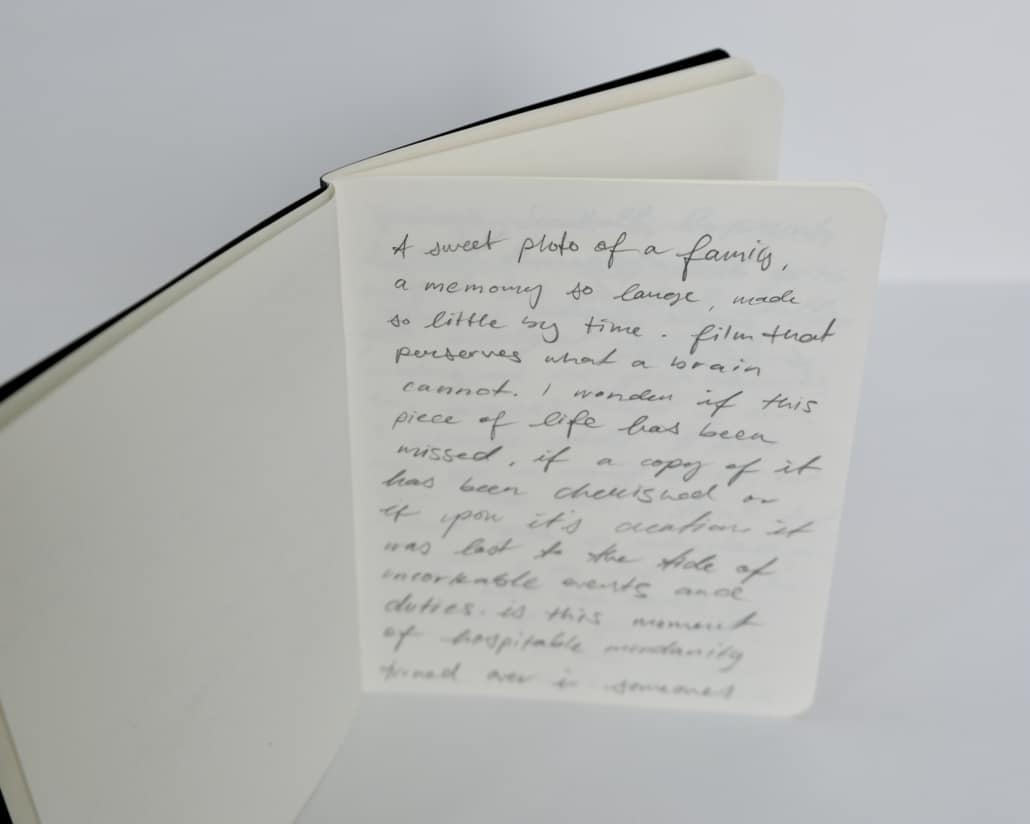 A sweet photo of a family,
a memory so large, made
so little by time. film that
perserves what a brain
cannot. I wonder if this
piece of life has been
missed, if a copy of it
has been cherished or
if upon it's creation it
was lost to the tide of
unworkable events and
duties. is this moment
of hospitable mundanity
turned over in someones